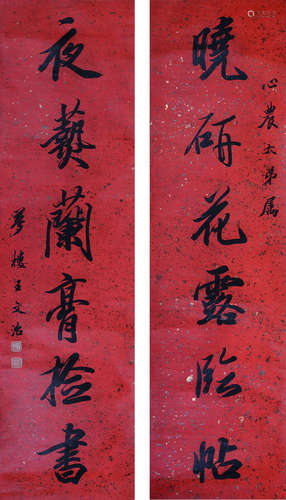 心農大弟屬
曉研花露臨帖
夜爇蘭膏撿書
夢樓王文治